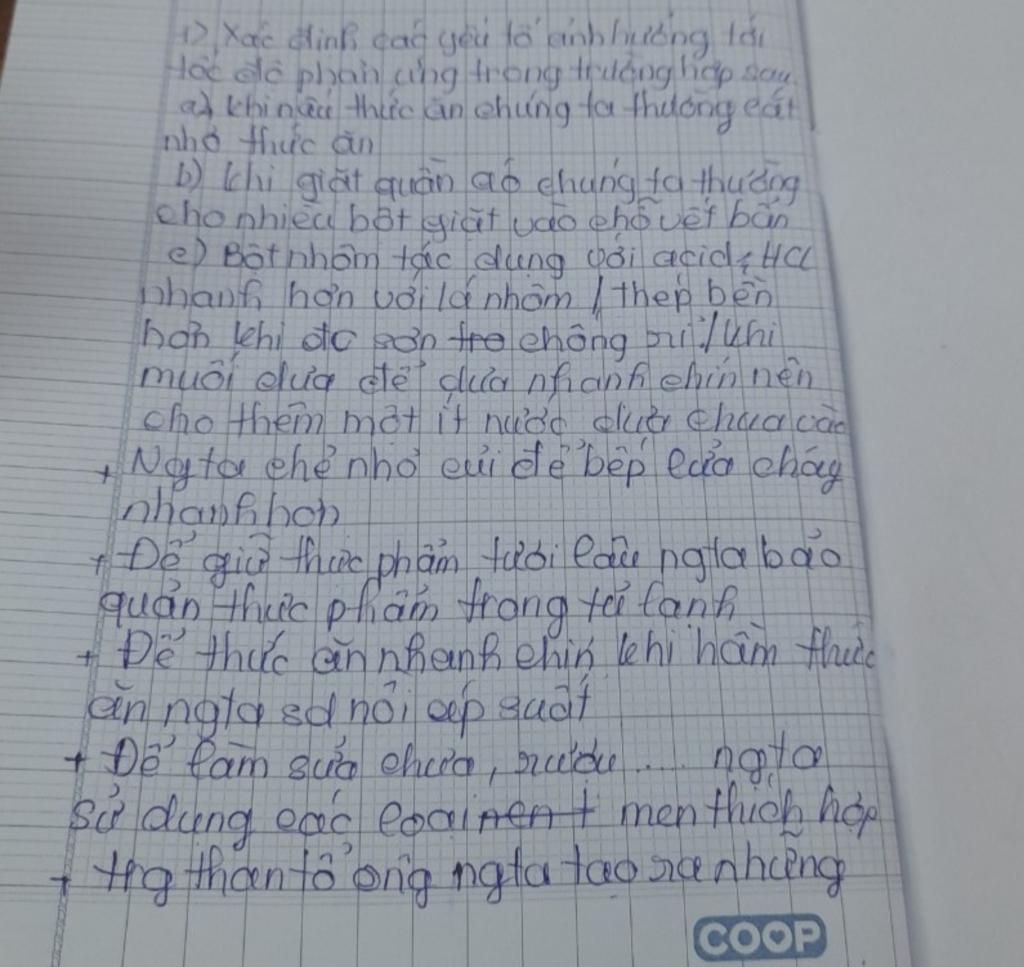 1), Xác định các yếu tố ảnh hưởng tới
tốc độ phản ứng trong trường hợp sau.
a) khi nấu thức ăn chúng ta thường cắt
nhỏ thức ăn
b) khi giặt quần áo chúng ta thường
cho nhiều bột giặt vào chỗ vết bẩn
c) Bột nhôm tác dụng với acid HCl
nhanh hơn với lá nhôm / thép bền
hơn khi đc sơn chống rỉ / khi
muối dưa để dưa nhanh chín nên
cho thêm một ít nước dưa chua vào
+ Ngta chẻ nhỏ củi để bếp lửa cháy
nhanh hơn
+ Để giữ thực phẩm tươi lâu ngta bảo
quản thực phẩm trong tủ lạnh
+ Để thức ăn nhanh chín khi hầm thức
ăn ngta sd nồi áp suất
+ Để làm sữa chua, rượu .... ngta
sử dụng các loại men thích hợp
+ trg than tổ ong ngta tạo ra những
COOP